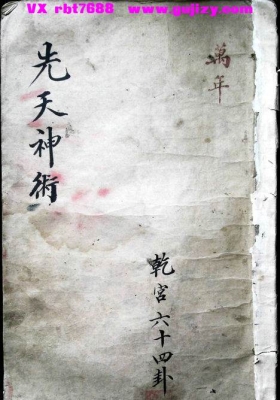 VX rbt7688 www.gujlzy.com
萬年
乾宮六十四卦
先天神術